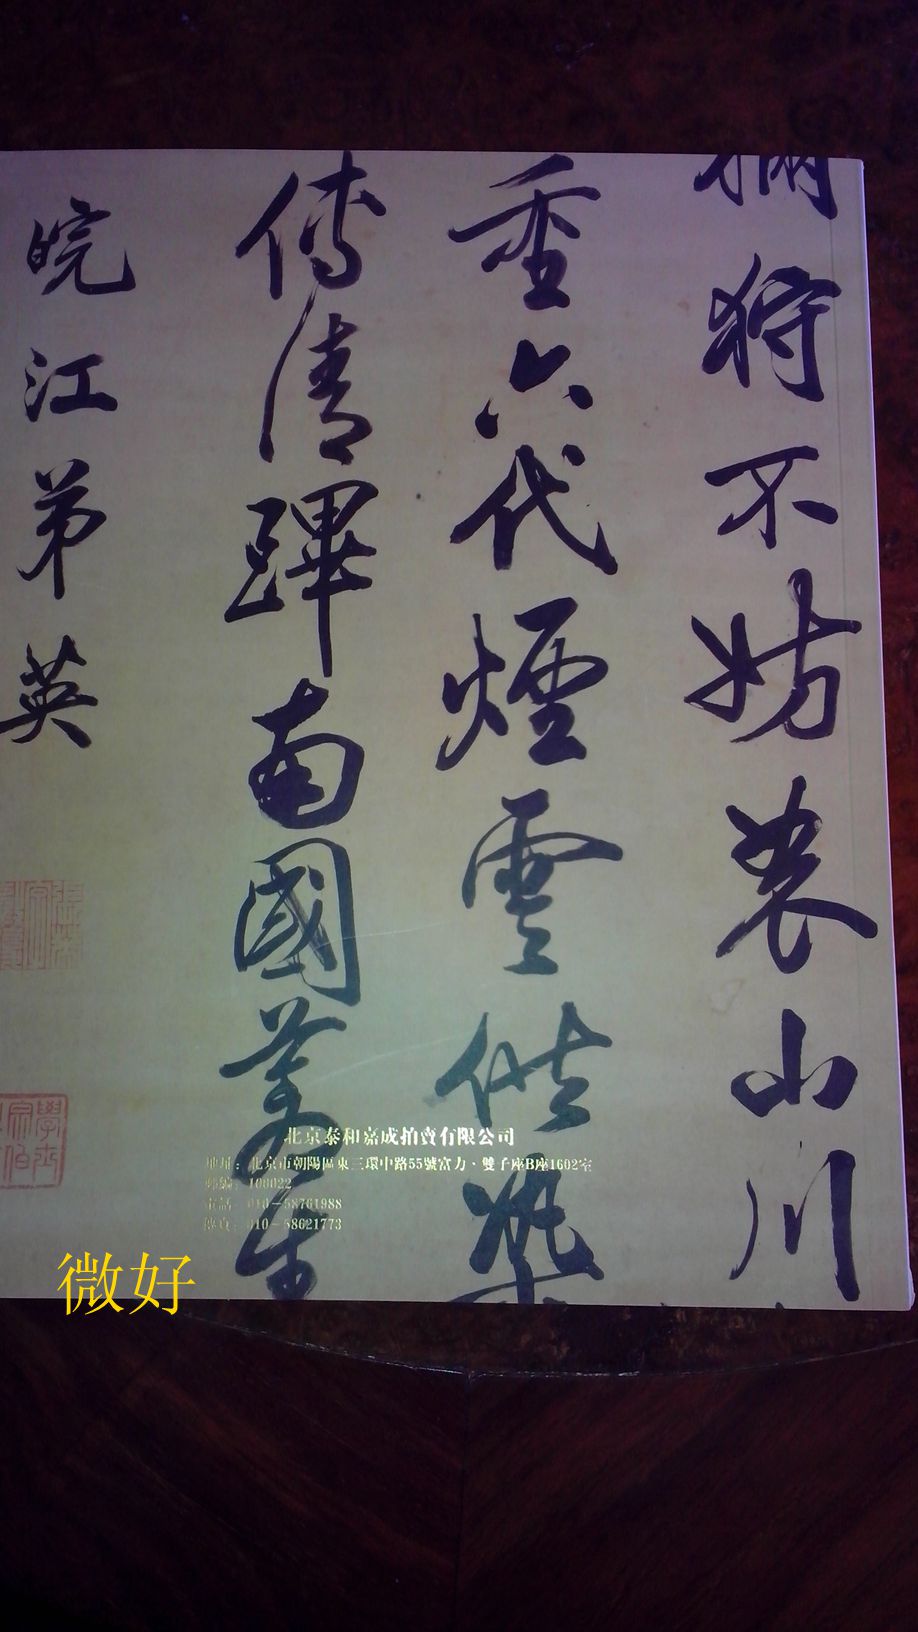 狩不妨裝山川
垂六代煙雲供
傳清蹕南國蒼生
皖江弟英
北京泰和嘉成拍賣有限公司
地址：北京市朝陽區東三環中路55號富力、雙子座B座1602室
郵編：100022
電話：010－58761988
傳真：010－58621773
微好